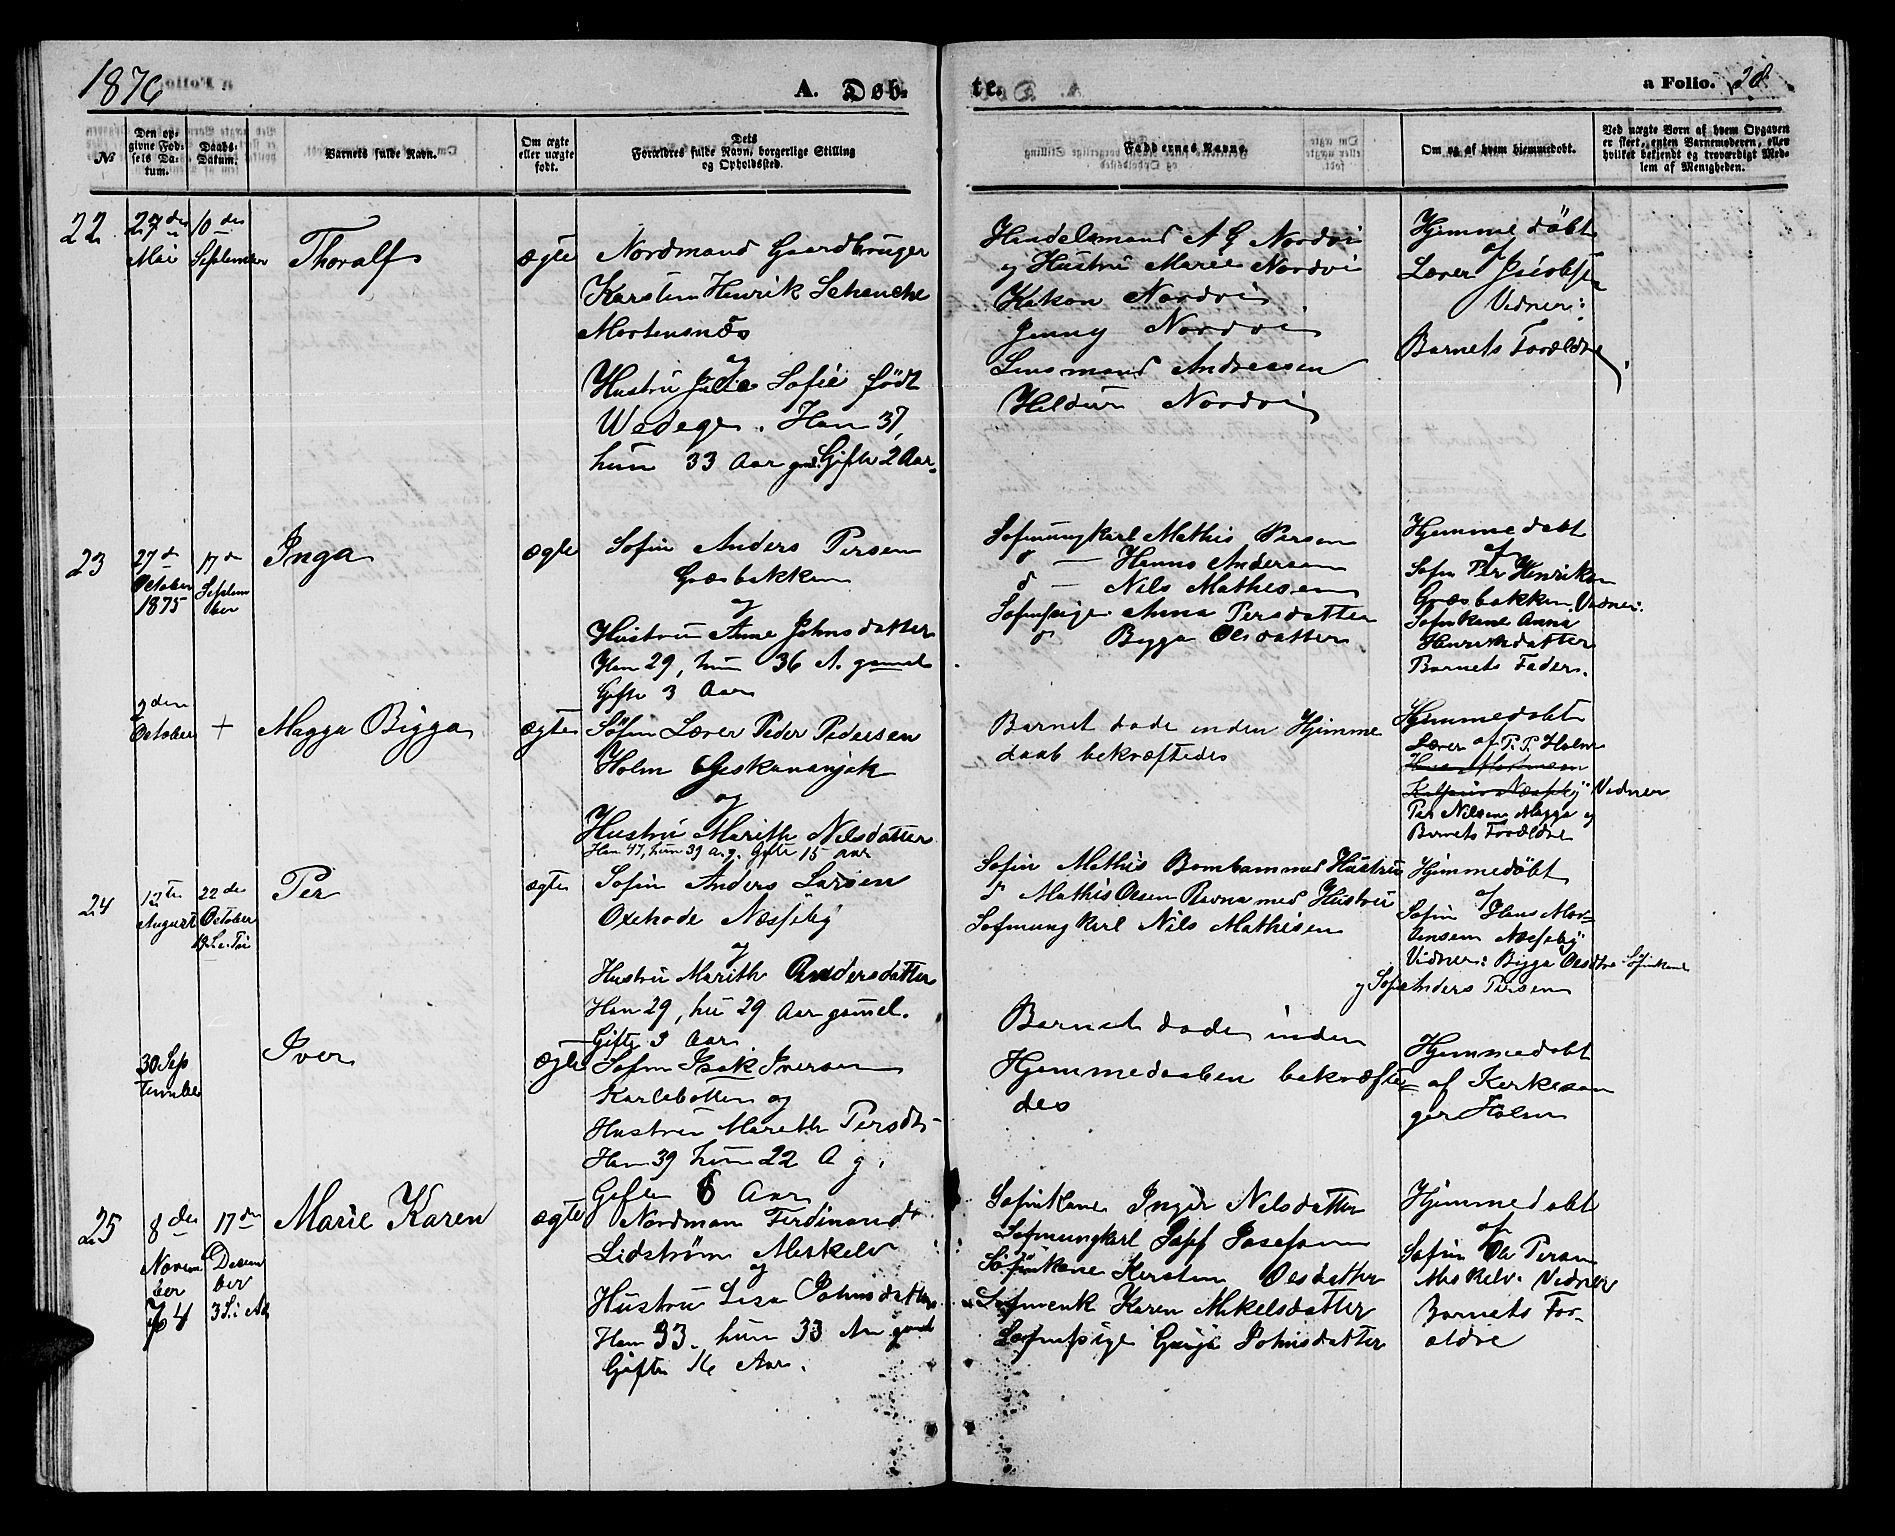 1876
A. Døb-
te.
a Folio. 28.
№
Den op-
givne Fød-
sels Da-
tum.
Daabs-
Datum.
Barnets fulde Navn.
Om ægte
eller uægte
født.
Dets
Forældres fulde Navn, borgerlige Stilling
og Opholdssted.
Faddernes Navne.
Om og af hvem hjemmedøbt.
Ved uægte Børn af hvem Opgaven
er skeet, enten Barnemoderen, eller
hvilket bekjendt og troværdigt Med-
lem af Menigheden.
22
27de
Mai
10de
September
Thoralf
ægte
Nordmand Gaardbruger
Karsten Henrik Schanche
Mortensnæs
og
Hustru Julie Sofie født
Wedege. Han 37,
hun 33 Aar gml. Gifte 2 Aar.
Handelsmand A G Nordvi
og Hustru Marie Nordvi
Hakon Nordvi
Jenny Nordvi
Lensmand Andreasen
Hildur Nordvi
Hjemmedøbt
af
Lærer Jacobsen
Vidner:
Barnets Forældre
23
27d
October
1875
17de
Septem
ber
Inga
ægte
Sofin Anders Persen
Græsbakken
og
Hustru Ane Johnsdatter
Han 29, hun 36 A. gamel
Gifte 3 Aar
Sofinungkarl Mathis Persen
d — Hans Andersen
d — Nils Mathisen
Sofinpige Anna Persdatter
d Bigga Olsdatter
Hjemmedøbt
af
Sofin Per Henriksen
Græsbakken, Vidner:
Sofinkone Anna
Henriksdatter
Barnets Fader.
2den
October
+
Magga Bigga
ægte
Søfin Lærer Peder Pedersen
Holm
og
Hustru Marith Nilsdatter
Han 47, hun 39 a. g. Gifte 15 aar
Barnet døde inden Hjemme
daab bekræftedes
Hjemmedøbt
Lærer af P. P. Holm
Vidner
Per Nilsen Magga og
Barnets Forældre
24
12te
August
22de
October
19 S. e. Tri
Per
ægte
Sofin Anders Larsen
Oxehode Næsseby
og
Hustru Marith Andersdatter
Han 29, hu 29 Aar gamel.
Gifte 3 Aar
Sofin Mathis Bomban med Hustru
d Mathis Olsen Ravna med Hustru
Sofinungkarl Nils Mathisen
Hjemmedøbt
af
Sofin Hans Mor-
tensen Næsseby
Vidner: Bigga Olsdtr Sofinkone
og Sofin Anders Persen
30 Sep
tember
Iver
ægte
Sofin Isak Iversen
Karlebotten og
Hustru Marith Persdt-
Han 39 hun 22 A g.
Gifte 6 Aar
Barnet døde inden
Hjemmedaaben bekræfte=
des
Hjemmedøbt
af Kirkesan
ger Holm
25
8de
Novem
ber
17de
Decem
ber
3 S. i Ad
Marie Karen
ægte
Nordman Ferdinand
Lidstrøm Meskelv
og
Hustru Lisa Johnsdatter
Han 33. hun 33 Aar gamel
Gifte 16 Aar.
Sofinkone Inger Nilsdatter
Sofinungkarl Josef Josefsen
Sofinkone Kersten Olsdatter
Sofinenk Karen Mikelsdatter
Sofinpige Johnsdatter
Hjemmedøbt
af
Sofin Ole Persen
Meskelv. Vidner
Barnets For-
ældre